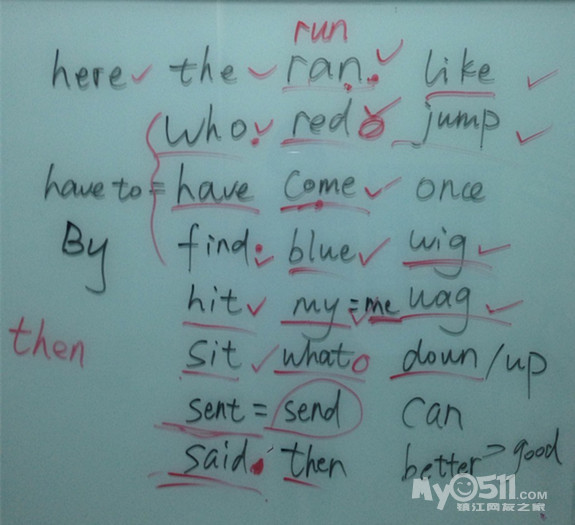 run
here the ran. like
who. red jump
have to = have come once
By find blue wig
hit my = me wag
then sit what down / up
sent = send can
said. then better > good
My0511.com
镇江网友之家